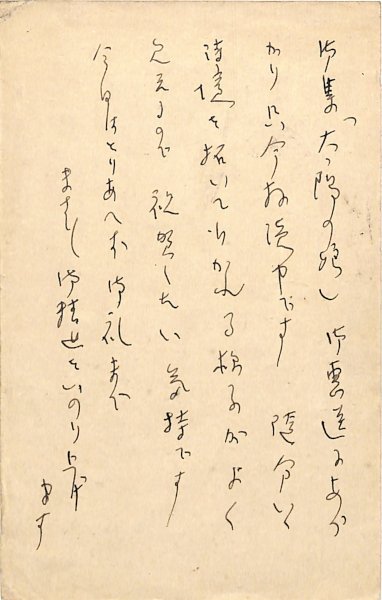 御集「太陽の娘」御恵送にあづ
かり只今拝読中です 随分いゝ
詩境を拓いてゆかれる様子がよく
見えるので 祝したい気持です
今日はとりあへず御礼まで
ますます御精進をいのり上げ
ます